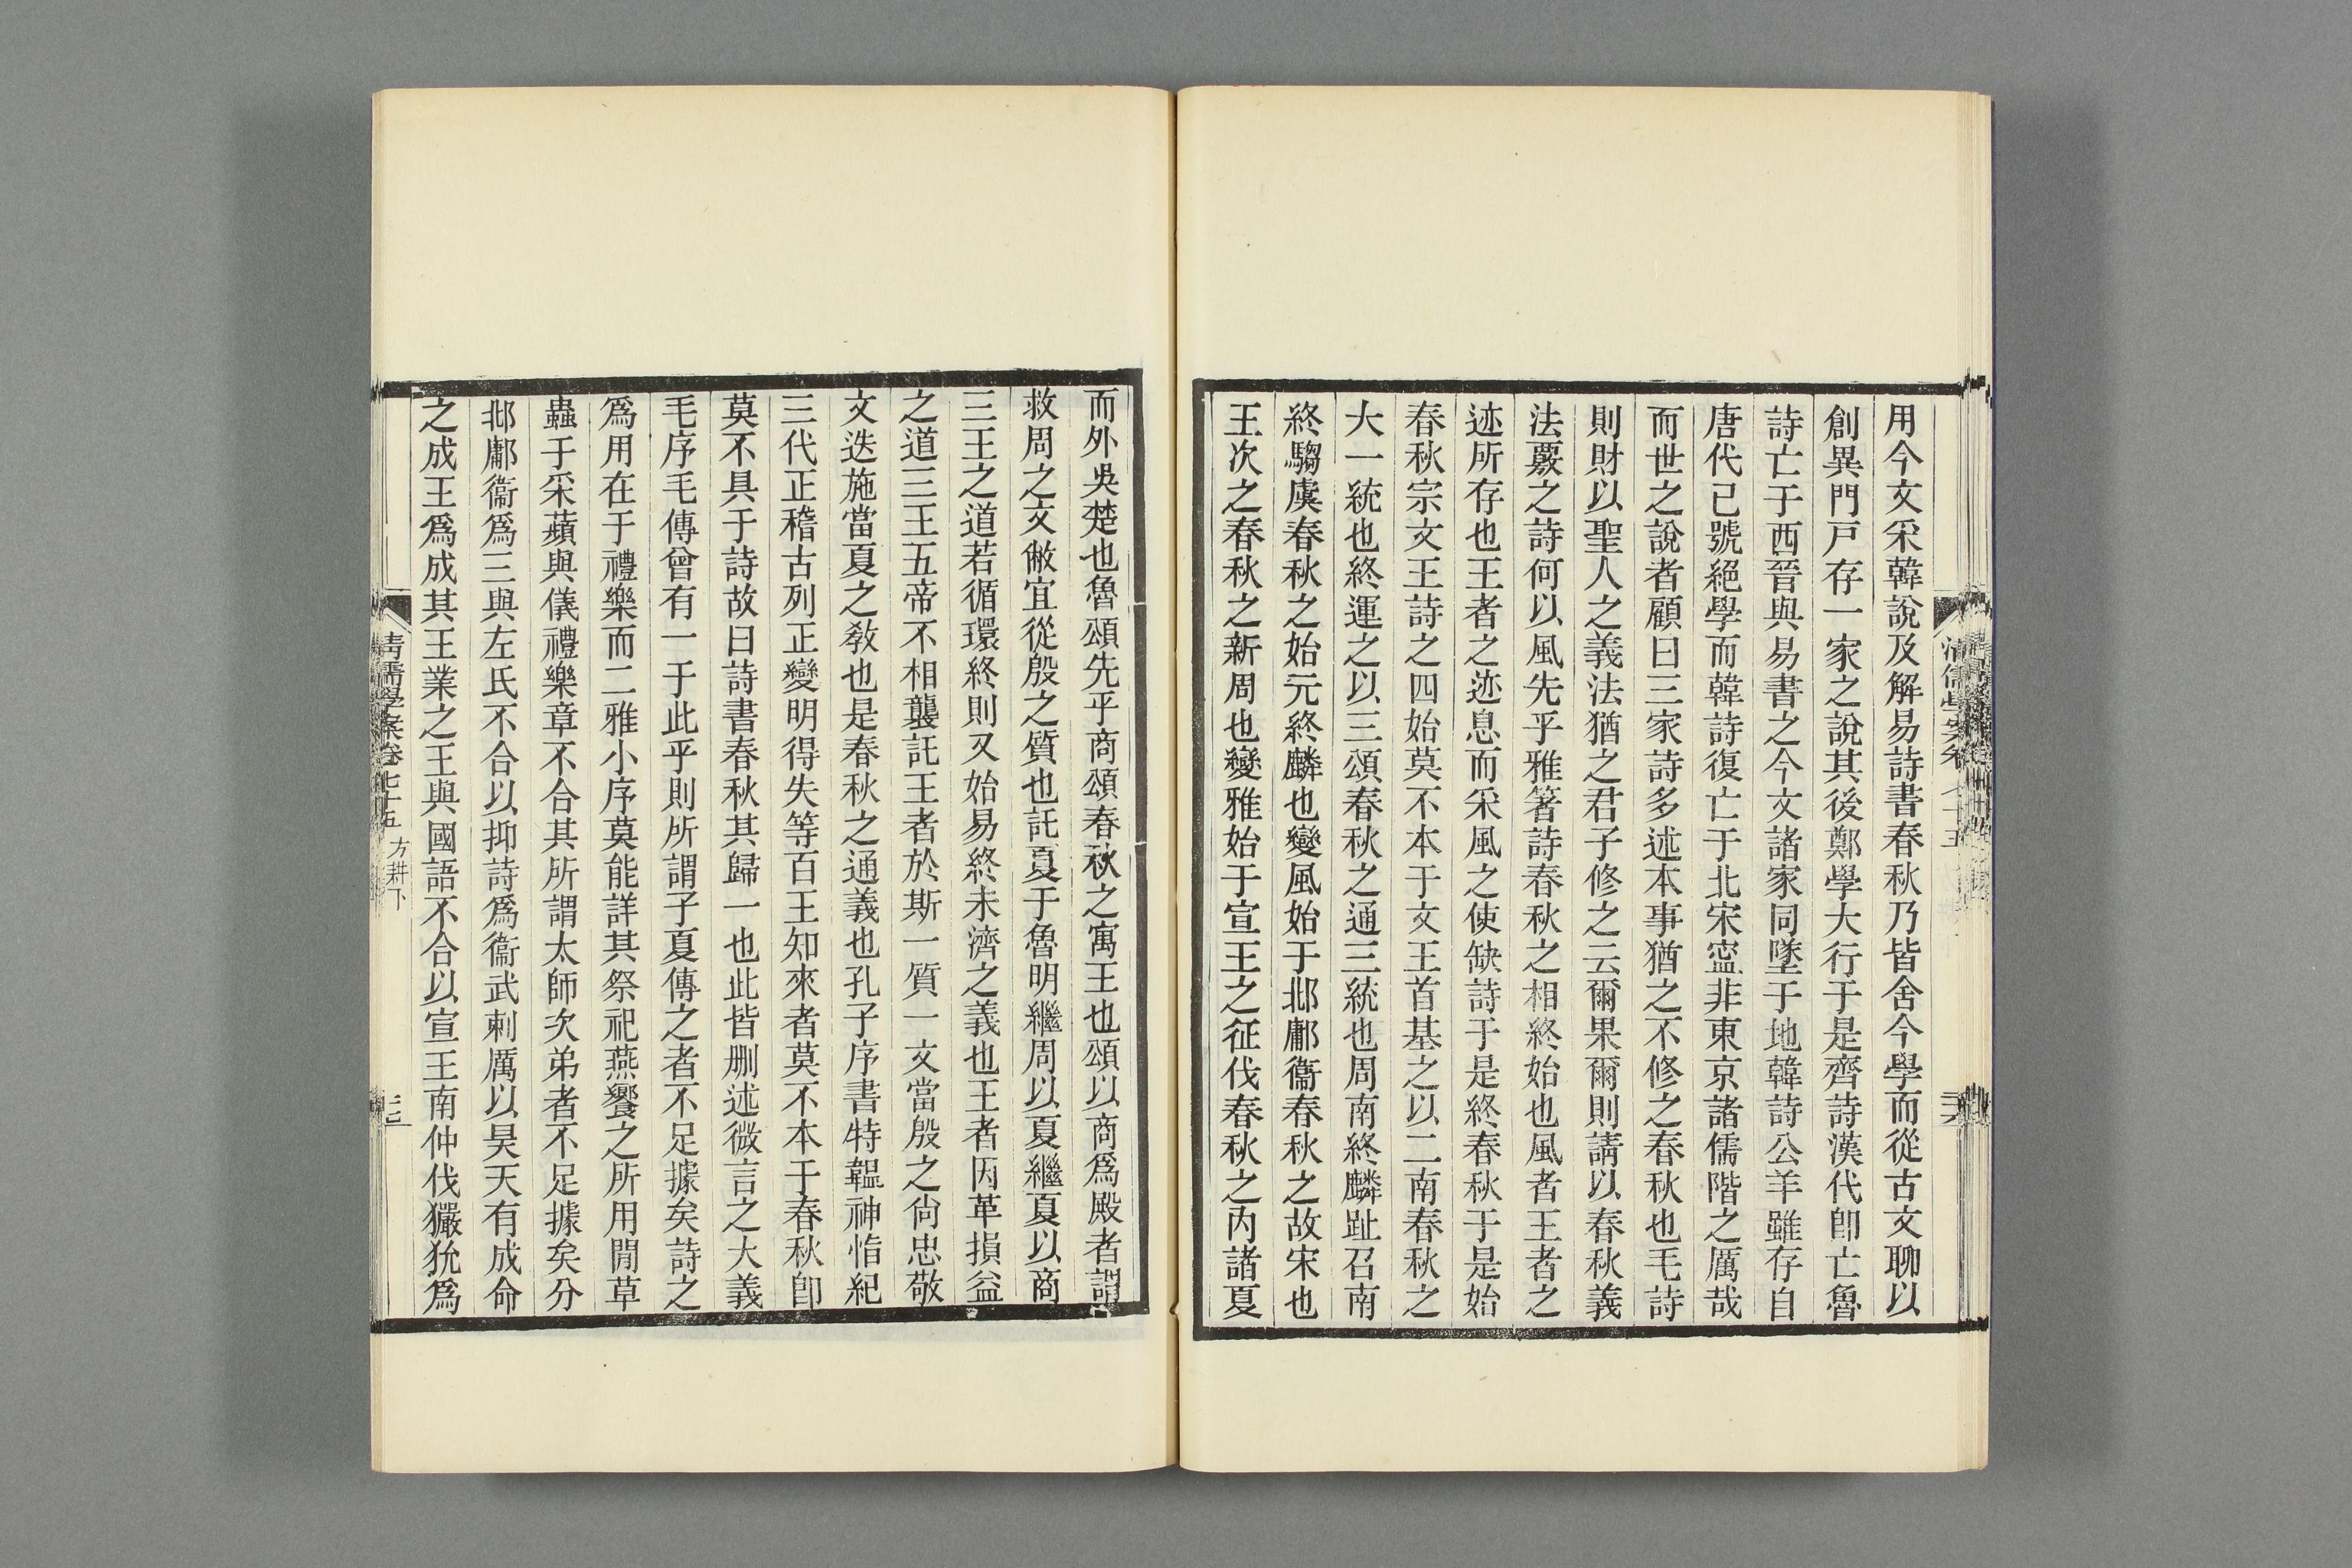 用今文采韓說及解易詩書春秋乃皆舍今學而從古文聊以
創異門戶存一家之說其後鄭學大行于是齊詩漢代卽亡魯
詩亡于西晉與易書之今文諸家同墜于地韓詩公羊雖存自
唐代已號絕學而韓詩復亡于北宋寍非東京諸儒階之厲哉
而世之說者顧曰三家詩多述本事猶之不修之春秋也毛詩
則財以聖人之義法猶之君子修之云爾果爾則請以春秋義
法覈之詩何以風先乎雅箸詩春秋之相終始也風者王者之
迹所存也王者之迹息而采風之使缺詩于是終春秋于是始
春秋宗文王詩之四始莫不本于文王首基之以二南春秋之
大一統也終運之以三頌春秋之通三統也周南終麟趾召南
終騶虞春秋之始元終麟也變風始于邶鄘衞春秋之故宋也
王次之春秋之新周也變雅始于宣王之征伐春秋之內諸夏
而外吳楚也魯頌先乎商頌春秋之寓王也頌以商爲殿者謂
救周之文敝宜從殷之質也託夏于魯明繼周以夏繼夏以商
三王之道若循環終則又始易終未濟之義也王者因革損益
之道三王五帝不相襲託王者於斯一質一文當殷之尙忠敬
文迭施當夏之敎也是春秋之通義也孔子序書特韞神恉紀
三代正稽古列正變明得失等百王知來者莫不本于春秋卽
莫不具于詩故曰詩書春秋其歸一也此皆刪述微言之大義
毛序毛傳曾有一于此乎則所謂子夏傳之者不足據矣詩之
爲用在于禮樂而二雅小序莫能詳其祭祀燕饗之所用閒草
蟲于采蘋與儀禮樂章不合其所謂太師次弟者不足據矣分
邶鄘衞爲三與左氏不合以抑詩爲衞武刺厲以昊天有成命
之成王爲成其王業之王與國語不合以宣王南仲伐玁狁爲
清儒學案卷七十五 方耕下